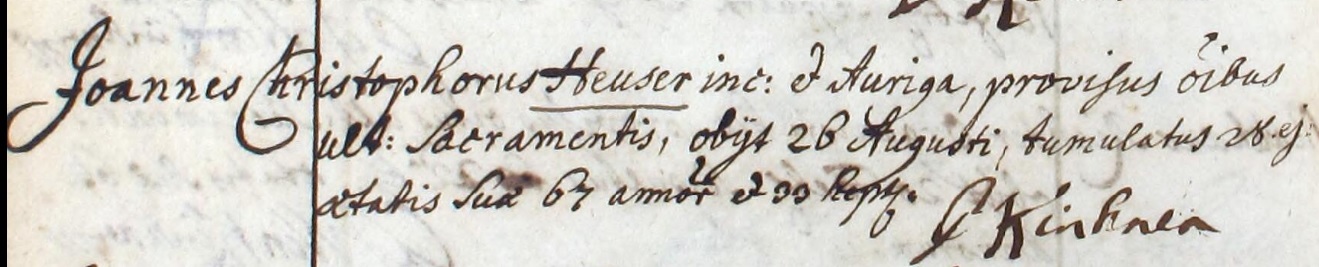 Joannes Christophorus Heuser inc: et Auriga, provisus õibus
ult: Sacramentis, obijt 26 Augusti, tumulatus 28 ej:
ætatis suæ 67 annor et 33 hept:
Kirchner